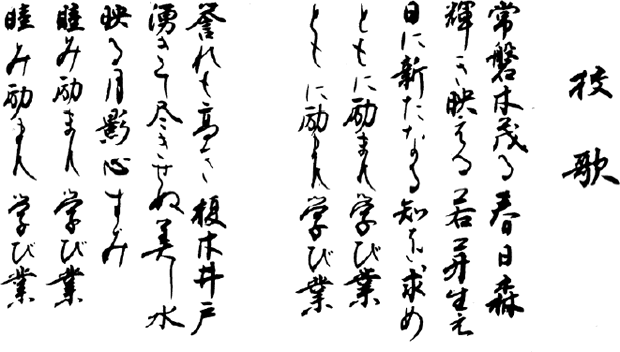 校歌
常磐木茂る 春日森
輝き映える 若芽生え
日に新たなる 知を求め
ともに励まん 学び業
ともに励まん 学び業
誉れも高き 榎木井戸
湧きて尽きせぬ 美し水
映る月影 心すみ
睦み励まん 学び業
睦み励まん 学び業